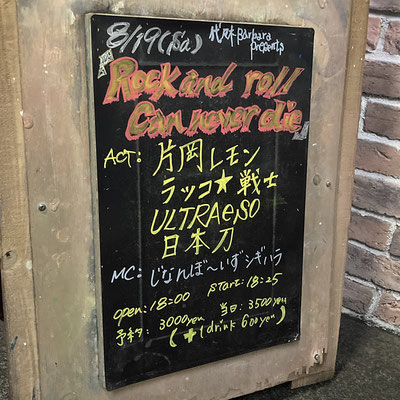 8/19(Sa)
代々木Barbara
presents
Rock and roll
Can never die
ACT: 片岡レモン
ラッコ★戦士
ULTRAeiSO
日本刀
MC: じなんぼ〜いずシギハラ
open: 18:00 start: 18:25
予約: 3000yen 当日: 3500yen
(+1drink 600yen)